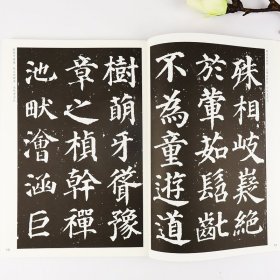 殊相岐嶷絕
於葷茹髫齔
不為童遊道
樹萌牙聳豫
章之楨幹禪
池畎澮涵巨